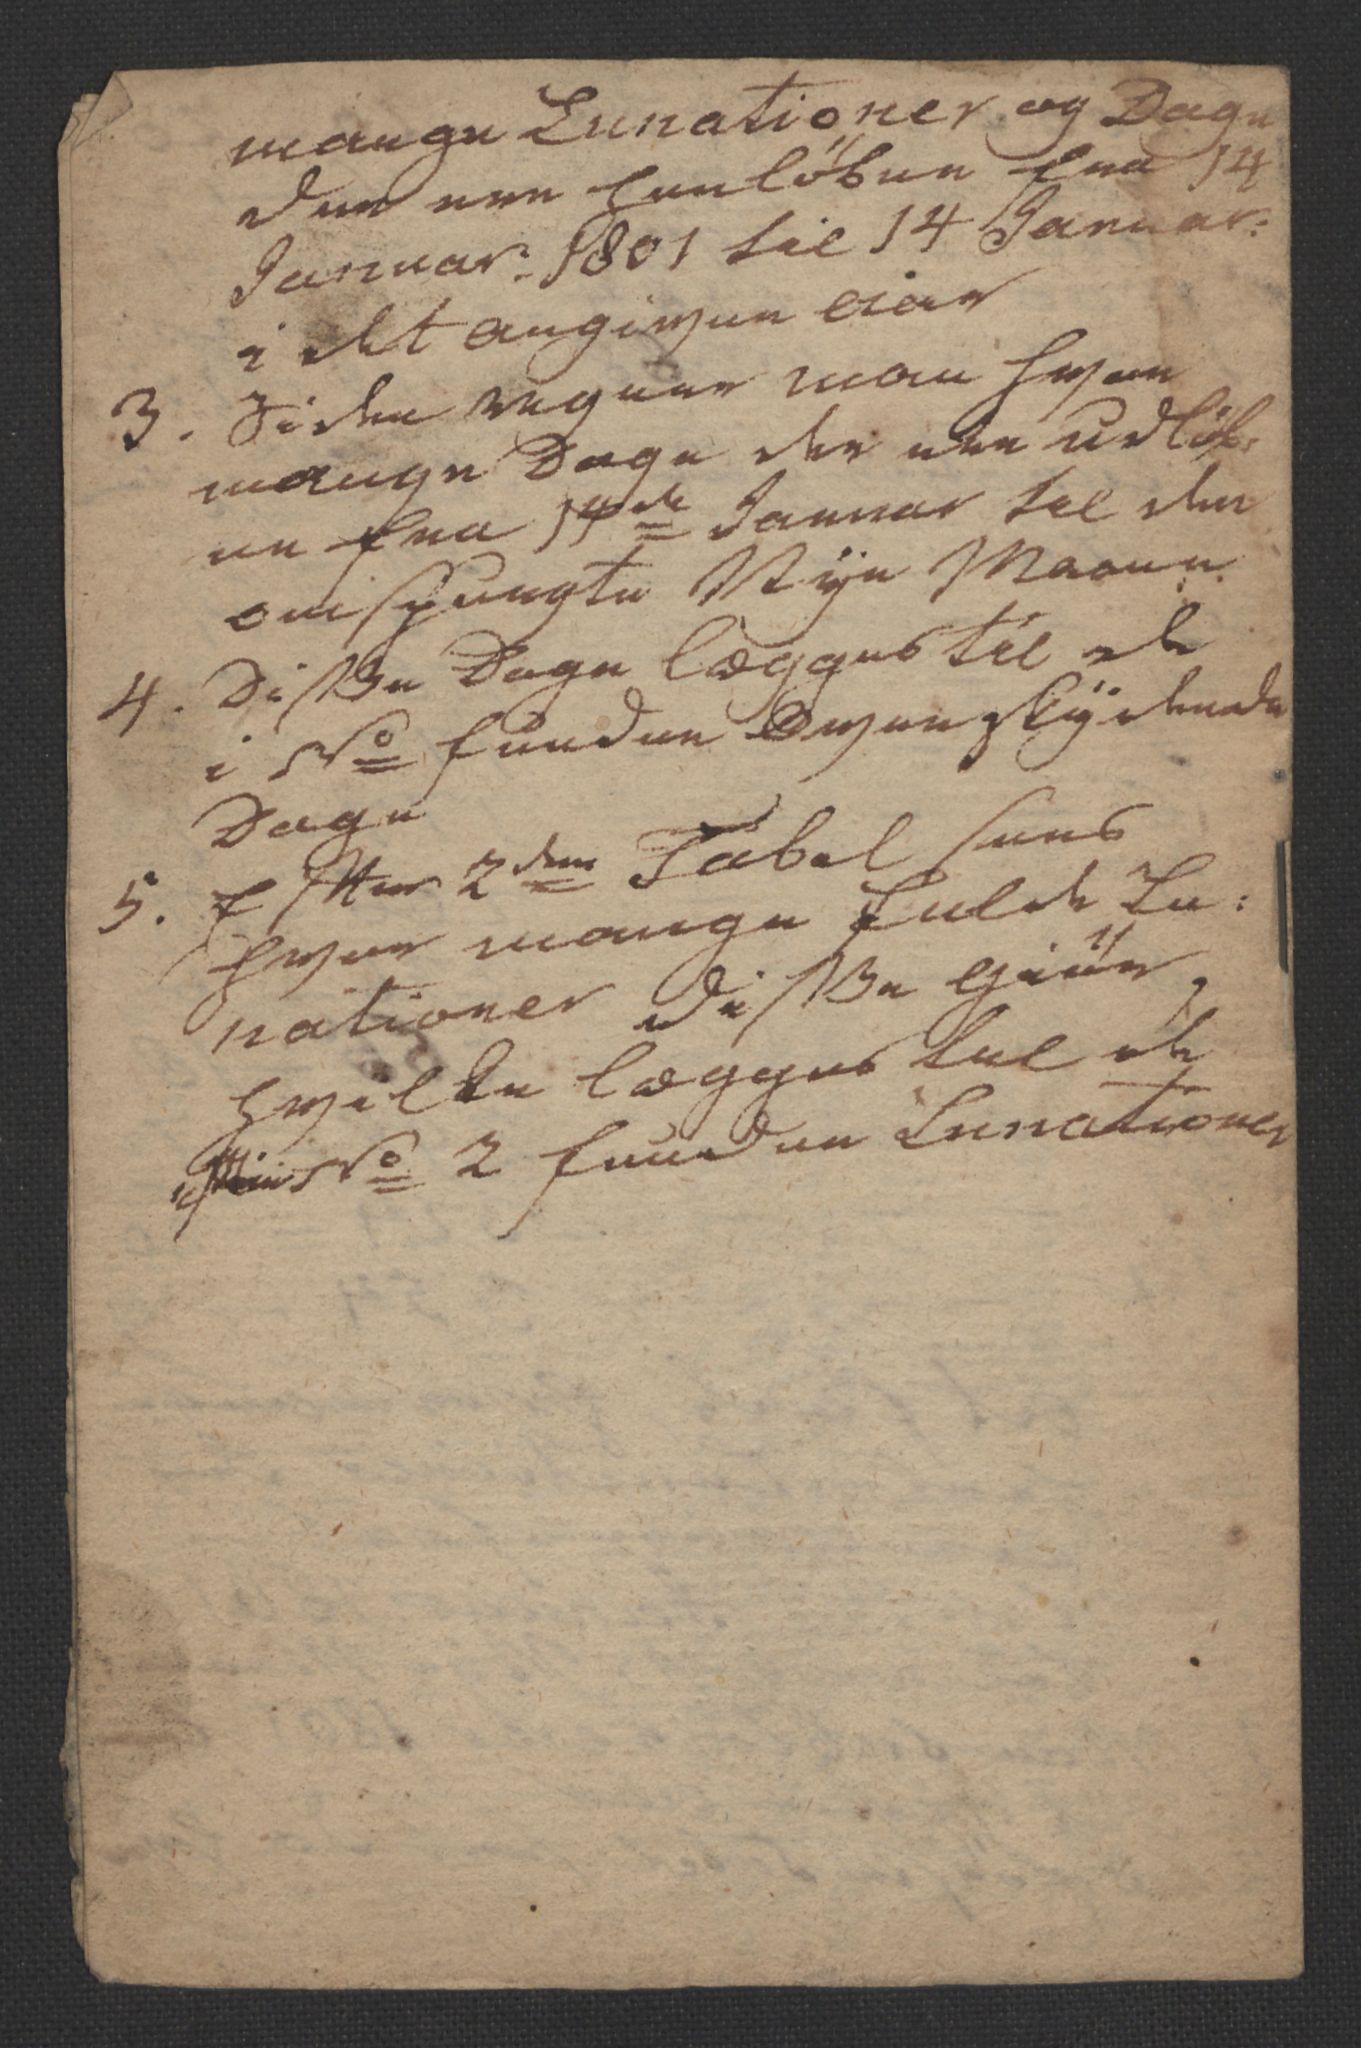 mange Lunationer og Dage
der ere henløbne fra 14
Januar: 1801 til 14 Januar:
i det angivne Aar
3. Siden regner man hvor
mange Dage der ere udløb:
ne fra 14de Januar til den
omspurgte Nÿe Maane.
4. Disse Dage lægges til de
i No fundne Overskÿdende
Dage
5. Efter 2den Tabel sees
hvor mange hele Lu:
nationer disse giör,
hvilke lægges til de
No 2 fundne Lunationer